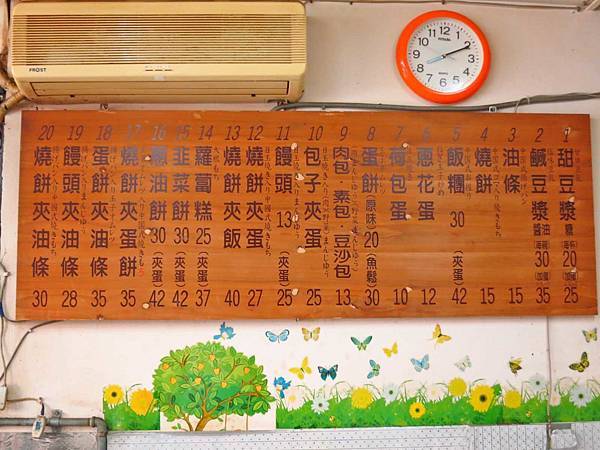 FROST
12 1 2 3 4 5 6 7 8 9 10 11
QUARTZ
1 甜豆漿 糖 (海碗) 20 (加蛋) 25
2 鹹豆漿 醬油 (海碗) 30 (加蛋) 35
3 油條 15
4 燒餅 15
5 飯糰 30 (夾蛋) 42
6 蔥花蛋 12
7 荷包蛋 10
8 蛋餅 (原味) 20 (魚鬆) 30
9 肉包·素包·豆沙包 13
10 包子夾蛋 25
11 饅頭 13 (夾蛋) 25
12 燒餅夾蛋 27
13 燒餅夾飯 40
14 蘿蔔糕 25 (夾蛋) 37
15 韭菜餅 30 (夾蛋) 42
16 蔥油餅 30 (夾蛋) 42
17 燒餅夾蛋餅 35
18 蛋餅夾油條 35
19 饅頭夾油條 28
20 燒餅夾油條 30